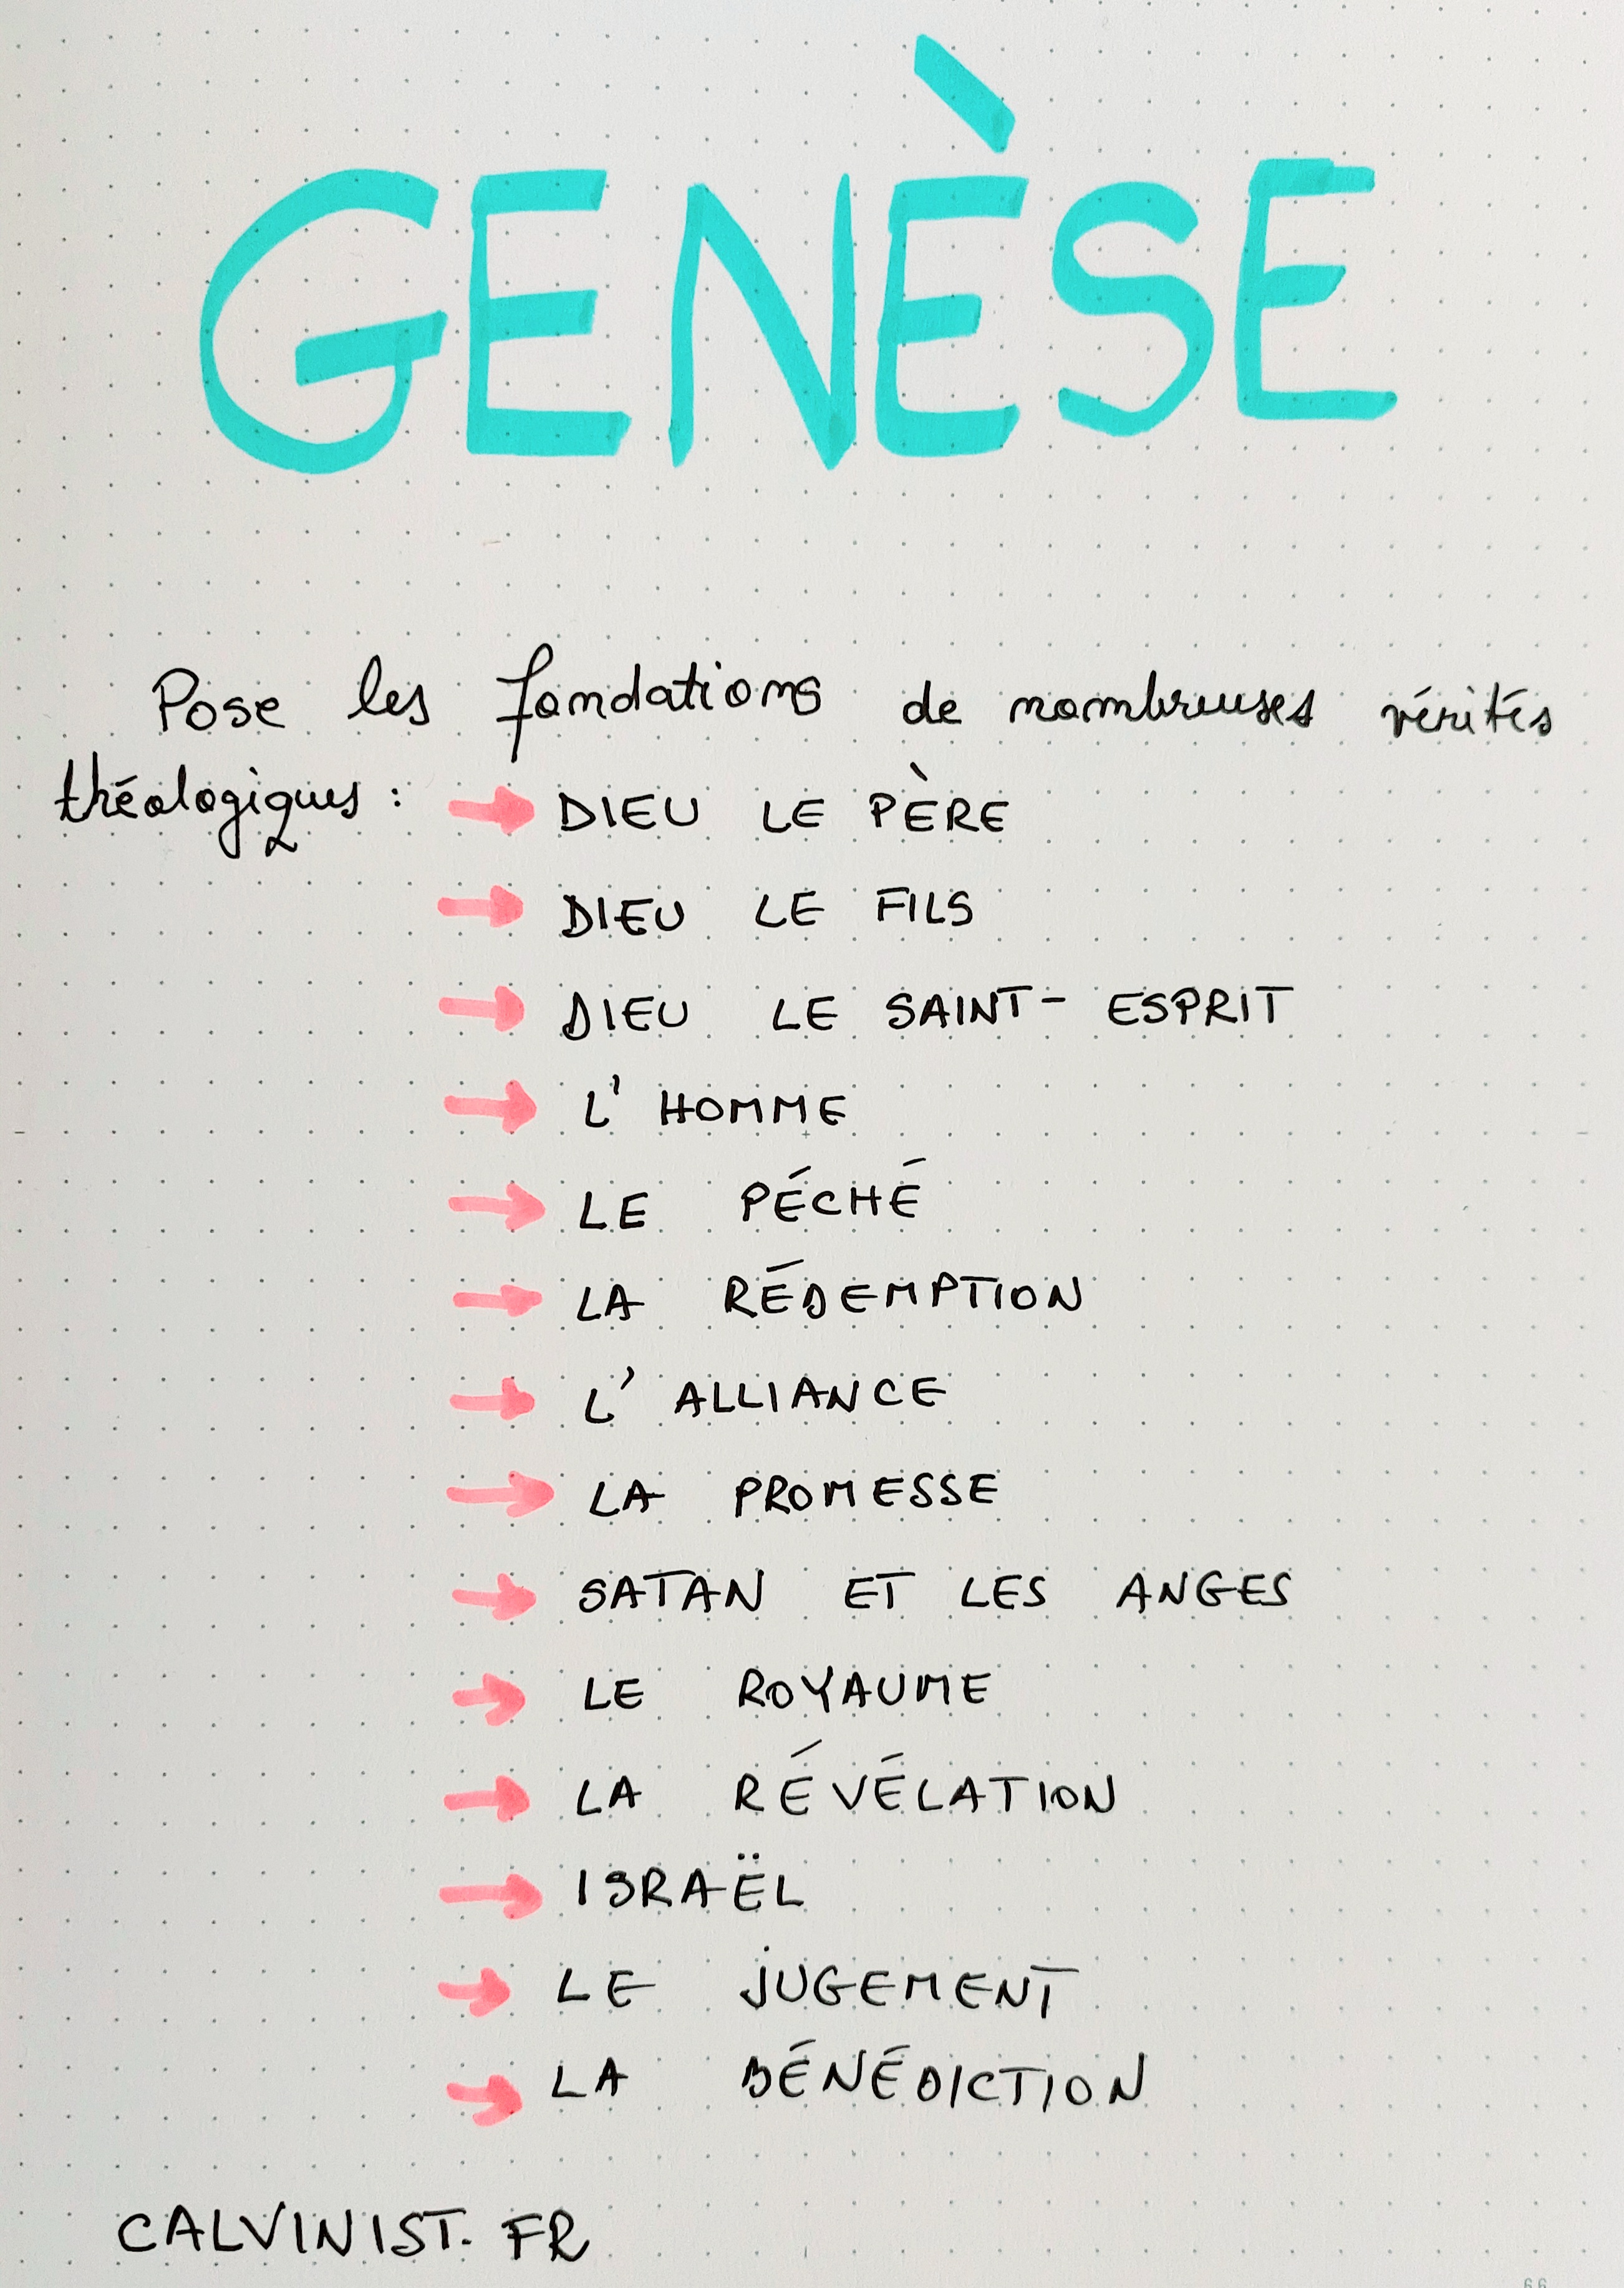 GENÈSE
Pose les fondations de nombreuses vérités
théologiques : → DIEU LE PÈRE
→ DIEU LE FILS
→ DIEU LE SAINT-ESPRIT
→ L'HOMME
→ LE PÉCHÉ
→ LA RÉDEMPTION
→ L'ALLIANCE
→ LA PROMESSE
→ SATAN ET LES ANGES
→ LE ROYAUME
→ LA RÉVÉLATION
→ ISRAËL
→ LE JUGEMENT
→ LA BÉNÉDICTION
CALVINIST.FR
66